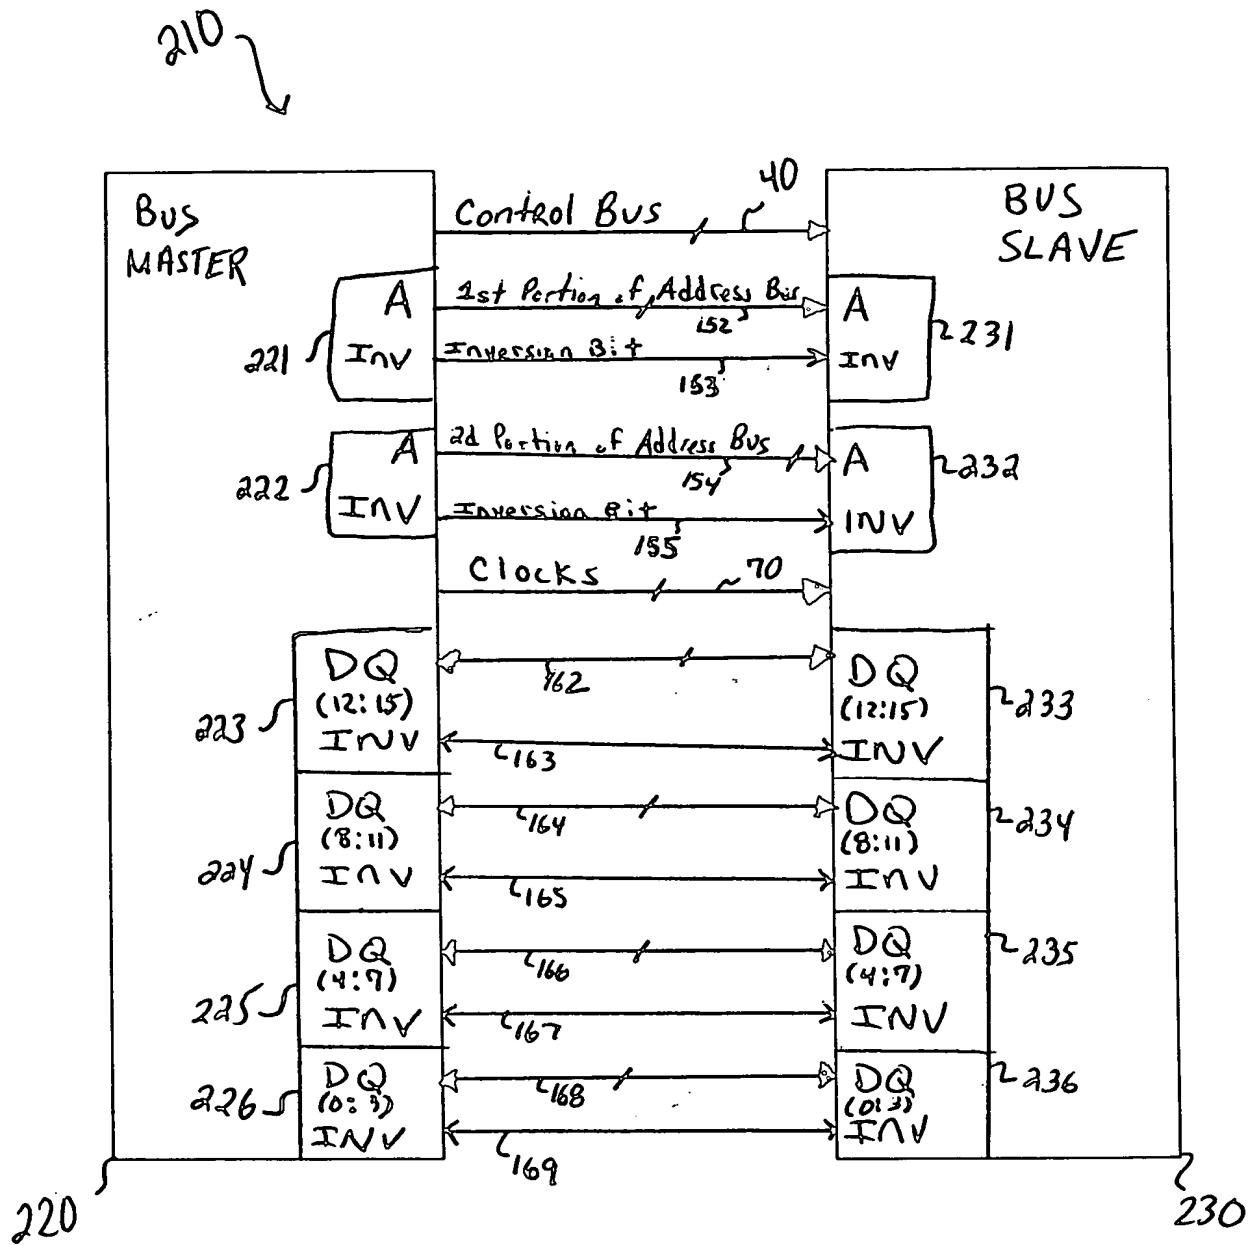 210
Bus
MASTER
Control Bus
40
BUS
SLAVE
A
1st Portion of Address Bus
152
A
221
Inv
Inversion Bit
153
Inv
231
A
2d Portion of Address Bus
154
A
222
INV
Inversion Bit
155
INV
232
Clocks
70
DQ
(12:15)
INV
223
162
163
DQ
(12:15)
INV
233
DQ
(8:11)
INV
224
164
165
DQ
(8:11)
INV
234
DQ
(4:7)
INV
225
166
167
DQ
(4:7)
INV
235
DQ
(0:3)
INV
226
168
169
DQ
(0:3)
INV
236
220
230